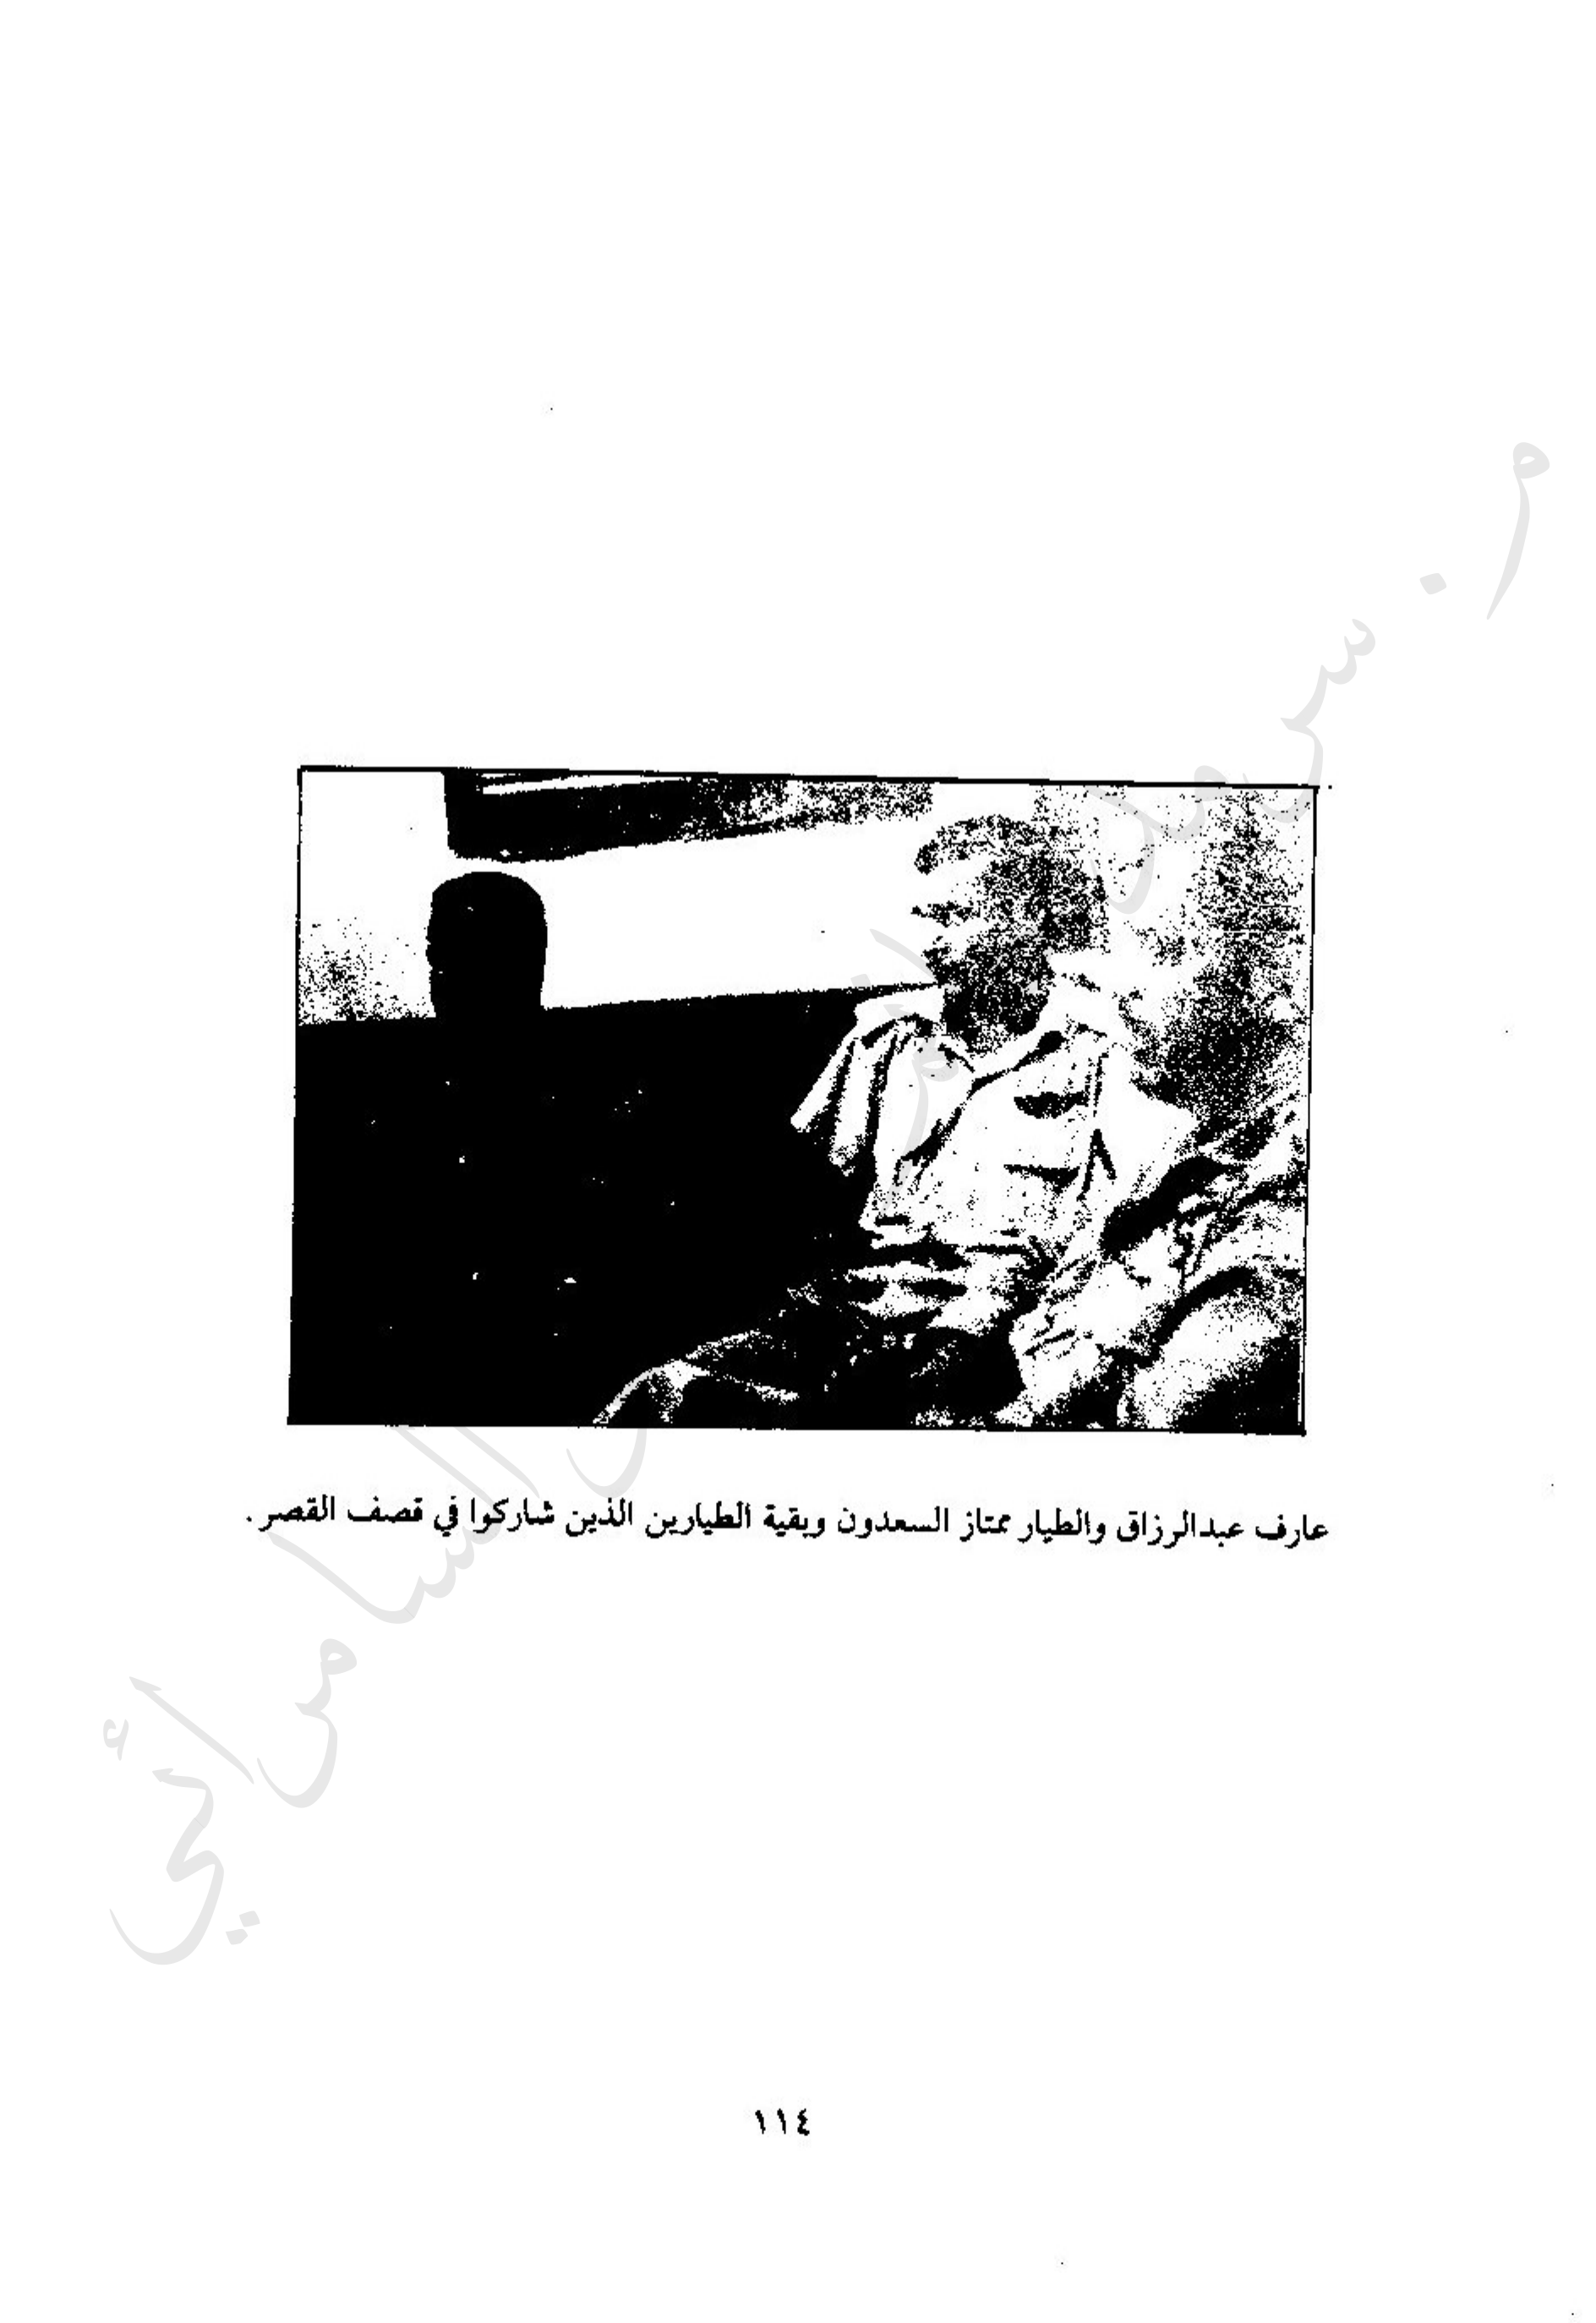 عارف عبدالرزاق والطيار ممتاز السعدون وبقية الطيارين الذين شاركوا في قصف القصر .
١١٤